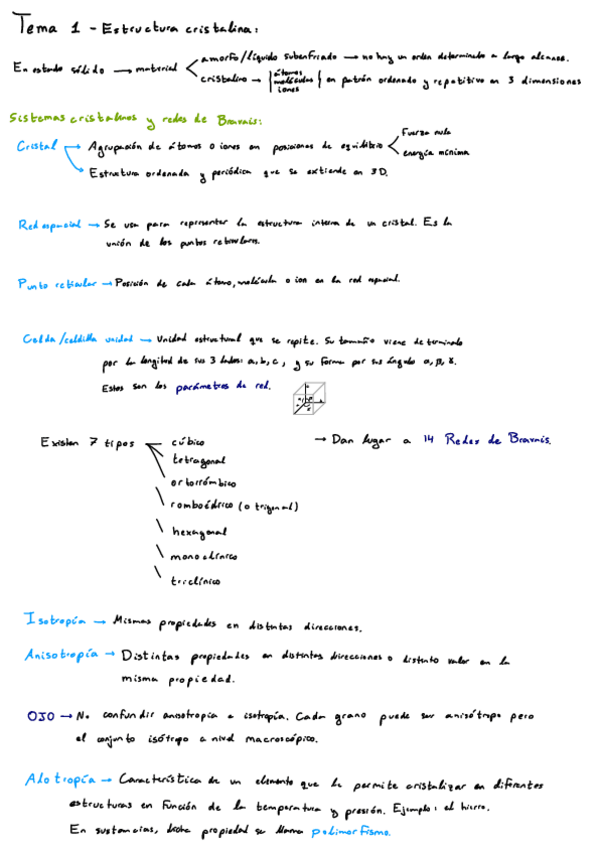 Tema 1 - Estructura cristalina:
amorfo/líquido subenfriado → no hay un orden determinado a largo alcance.
En estado sólido → material
cristalino → átomos moléculas iones en patrón ordenado y repetitivo en 3 dimensiones
Sistemas cristalinos y redes de Bravais:
Cristal → Agrupación de átomos o iones en posiciones de equilibrio
Fuerza nula
energía mínima
Estructura ordenada y periódica que se extiende en 3D.
Red espacial → Se usa para representar la estructura interna de un cristal. Es la
unión de los puntos reticulares.
Punto reticular → Posición de cada átomo, molécula o ion en la red espacial.
Celda/celdilla unidad → Unidad estructural que se repite. Su tamaño viene determinado
por la longitud de sus 3 lados: a, b, c, y su forma por sus ángulo α, β, γ.
Estos son los parámetros de red.
Existen 7 tipos
cúbico
→ Dan lugar a 14 Redes de Bravais.
tetragonal
ortorrómbico
romboédrico (o trigonal)
hexagonal
monoclínico
triclínico
Isotropía → Mismas propiedades en distintas direcciones.
Anisotropía → Distintas propiedades en distintas direcciones o distinto valor en la
misma propiedad.
OJO → No confundir anisotropía e isotropía. Cada grano puede ser anisótropo pero
el conjunto isótropo a nivel macroscópico.
Alotropía → Característica de un elemento que le permite cristalizar en diferentes
estructuras en función de la temperatura y presión. Ejemplo: el hierro.
En sustancias, dicha propiedad se llama polimorfismo.